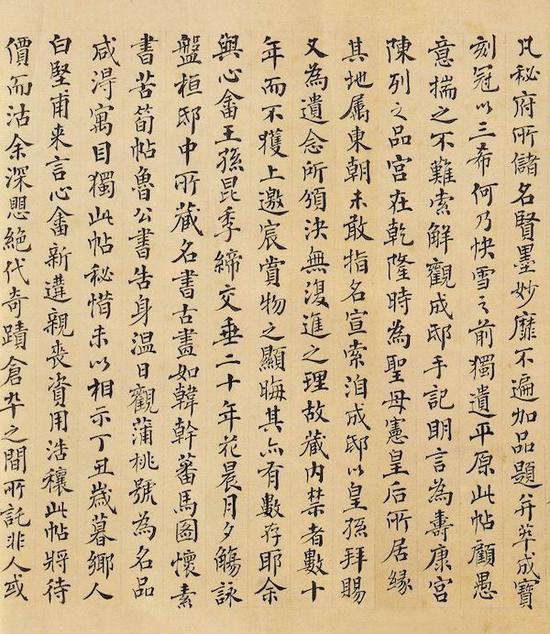 凡秘府所儲名賢墨妙靡不遍加品題并萃成寶
刻冠以三希何乃快雪之前獨遺平原此帖顧愚
意揣之不難索解觀成邸手記明言為壽康宮
陳列之品宮在乾隆時為聖母憲皇后所居緣
其地屬東朝未敢指名宣索洎成邸以皇孫拜賜
又為遺念所頒決無復進之理故藏內禁者數十
年而不獲上邀宸賞物之顯晦其亦有數存耶余
與心畬王孫昆季締交垂二十年花晨月夕觴詠
盤桓邸中所藏名書古畫如韓幹蕃馬圖懷素
書苦筍帖魯公書告身溫日觀蒲桃號為名品
咸得寓目獨此帖秘惜未以相示丁丑歲暮鄉人
白堅甫來言心畬新遘親喪資用浩穰此帖將待
價而沽余深懼絕代奇蹟倉卒之間所託非人或